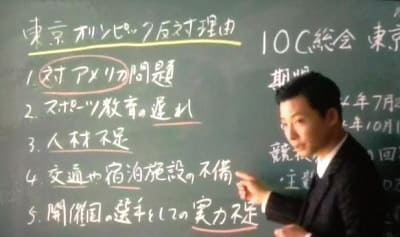 東京オリンピック反対理由
1. 対アメリカ問題
2. スポーツ教育の遅れ
3. 人材不足
4. 交通や宿泊施設の不備
5. 開催国の選手としての実力不足
IOC総会 東京
期
年7月
年10月1
競
の回
・主